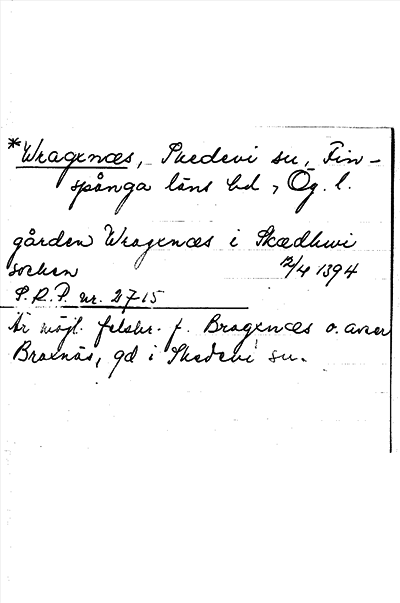 *Wragenæs, Skedevi sn, Fin-
spånga läns hd, Ög. l.
gården Wragenæs i Skædhwi
socken 12/4 1394
S.R.P. nr. 2715
Är möjl. felskr. f. Bragenæs o. avser
Braxnäs, gd i Skedevi sn.